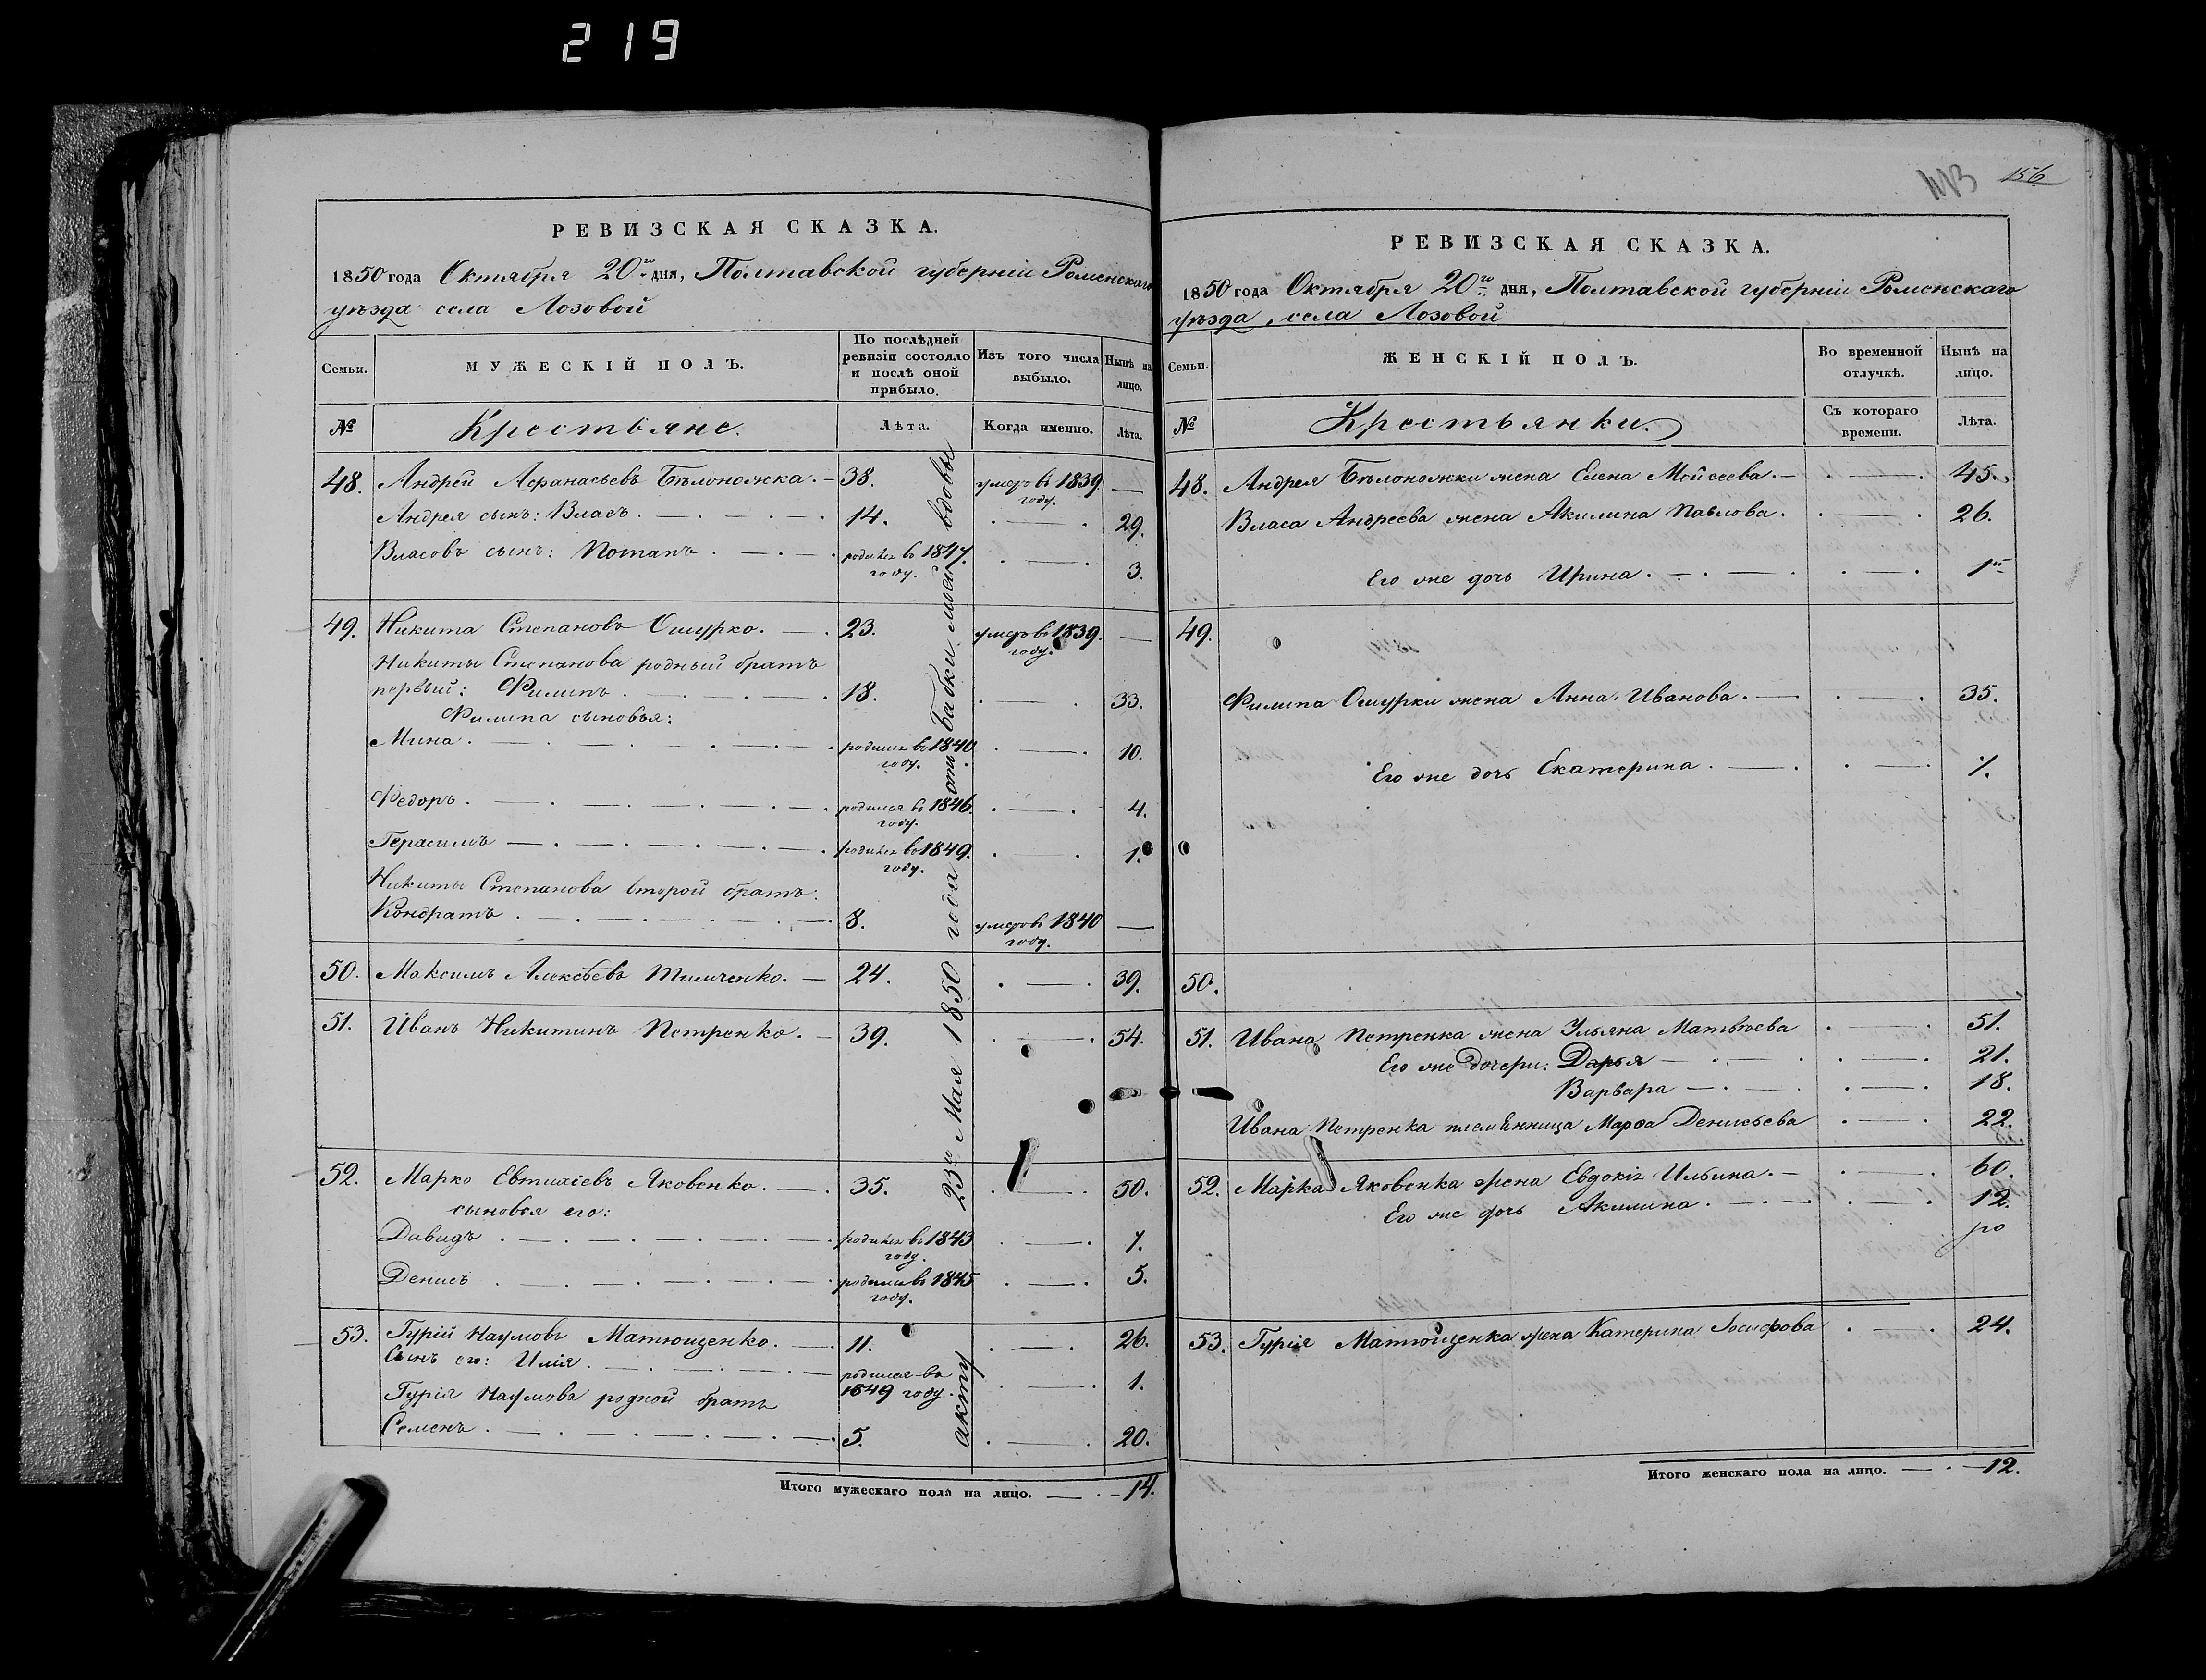 219
РЕВИЗСКАЯ СКАЗКА.
1850 года Октября 20го дня, Полтавской губерніи Роменскаго
уѣзда села Лозовой
Семьи.
МУЖЕСКІЙ ПОЛЪ.
По послѣдней ревизіи состояло и послѣ оной прибыло.
Изъ того числа выбыло.
Нынѣ на лицо.
№
Крестьяне.
Лѣта.
Когда именно.
Лѣта.
48. Андрей Афанасьевъ Бѣлоножка. 38. умеръ въ 1839 году. —
Андрея сынъ: Власъ. 14. 29.
Власовъ сынъ: Потапъ. родился въ 1847 году. 3.
49. Никита Степановъ Ошурко. 23. умеръ въ 1839. году. —
Никиты Степанова родный братъ
первый: Филипъ. 18. 33.
Филипа сыновья:
Мина. родился въ 1840 году. 10.
Федоръ. родился въ 1846. году. 4.
Герасимъ родился въ 1849. году. 1.
Никиты Степанова второй братъ.
Кондратъ. 8. умеръ въ 1840 году. —
50. Максимъ Алексѣевъ Тимченко. 24. 39.
51. Иванъ Никитинъ Петренко. 39. 54.
52. Марко Евтихіевъ Яковенко. 35. 50.
сыновья его:
Давидъ. родился въ 1843 году. 7.
Денисъ родился въ 1845 году. 5.
53. Гурій Наумовъ Матющенко. 11. 26.
Сынъ его: Илія. родился въ 1849 году. 1.
Гурія Наумова родной братъ
Семенъ. 5. 20.
Итого мужескаго пола на лицо. 14.
акту 23го Мая 1850 года отъ Бабки моей вдовы
156
РЕВИЗСКАЯ СКАЗКА.
1850 года Октября 20го дня, Полтавской губерніи Роменскаго
уѣзда, села Лозовой
Семьи.
ЖЕНСКІЙ ПОЛЪ.
Во временной отлучкѣ.
Нынѣ на лицо.
№
Крестьянки.
Съ котораго времени.
Лѣта.
48. Андрея Бѣлоножки жена Елена Мойсеева. 45.
Власа Андреева жена Акилина Павлова. 26.
Его же дочь Ирина. 1
49.
Филипа Ошурки жена Анна Иванова. 35.
Его же дочь Екатерина. 7.
50.
51. Ивана Петренка жена Ульяна Матвѣева 51.
Его же дочери: Дарья 21.
Варвара 18.
Ивана Петренка племѣнница Марфа Денисьева 22.
52. Марка Яковенка жена Евдокія Ильина. 60.
Его же дочь Акилина. 12.
53. Гурія Матющенка жена Катерина Іосифова 24.
Итого женскаго пола на лицо. 12.